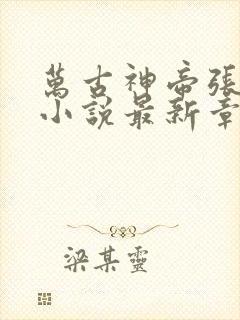 萬古神帝張
小說最新章
梁某靈